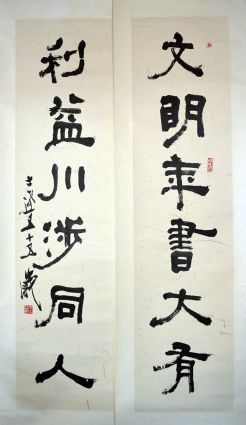 文明年書大有
利益川涉同人